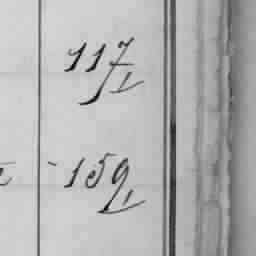 117 1
- 159 1